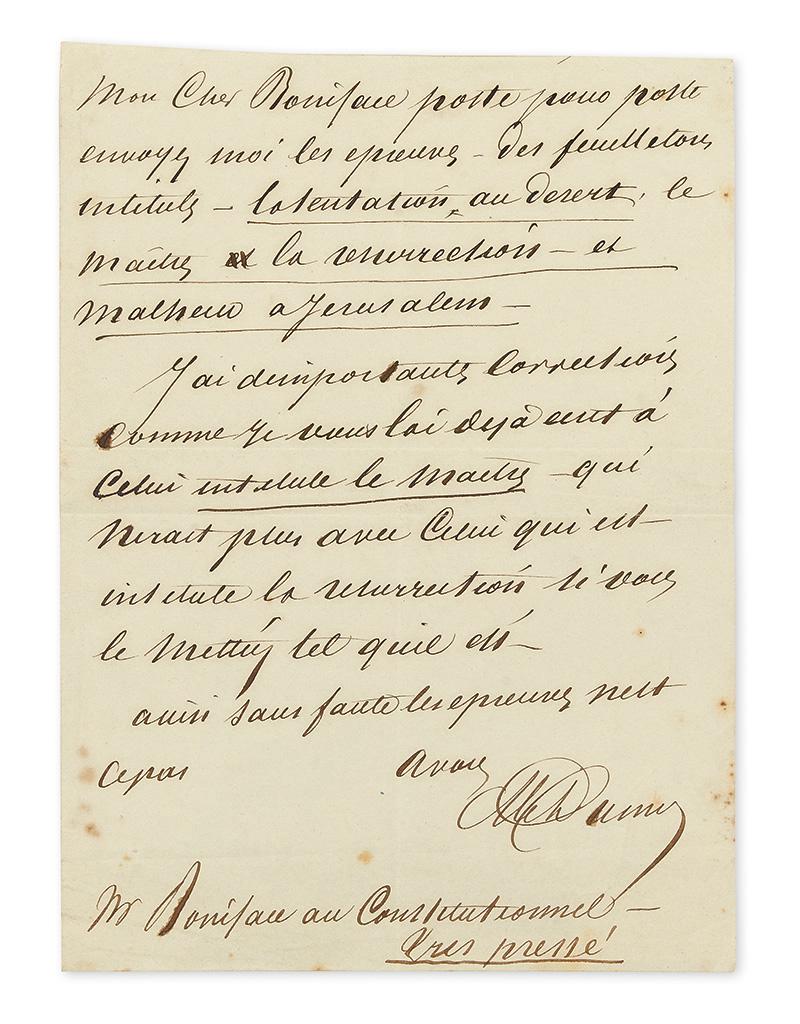 Mon Cher Boniface poste pour poste
envoyez moi les epreuves – des feuilletons
intitules – la tentation au desert, le
Maitre et la resurrection – et
Malheur a Jerusalem –
J'ai d'importantes Corrections
Comme Je vous l'ai deja ecrit à
Celui intitule le Maitre – qui
n'irait plus avec Celui qui est –
intitule la resurrection si vous
le Mettiez tel qu'il est –
ainsi sans faute les epreuves nest
cepas A vous
Alex Dumas
Mr Boniface au Constitutionnel –
Très pressé